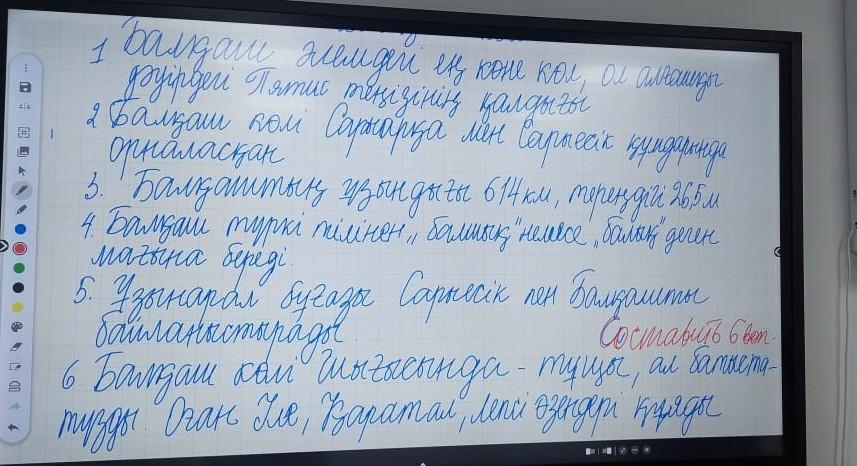 1 Балқаш әлемдегі ең көне көл, ол алғашқы
дәуірдегі Пятис теңізінің қалдығы
2 Балқаш көлі Сарыарқа мен Сарыесік құмдарында
орналасқан
3. Балқаштың ұзындығы 614 км, тереңдігі 26,5 м
4. Балқаш түркі тілінен „балшық" немесе „балық" деген
мағына береді.
5. Ұзынарал бұғазы Сарыесік пен Балқашты
байланыстырады
Составить 6 воп.
6 Балқаш көлі шығысында - тұщы, ал батыста-
тұзды Оған Іле, Қаратал, Лепсі өзендері құяды